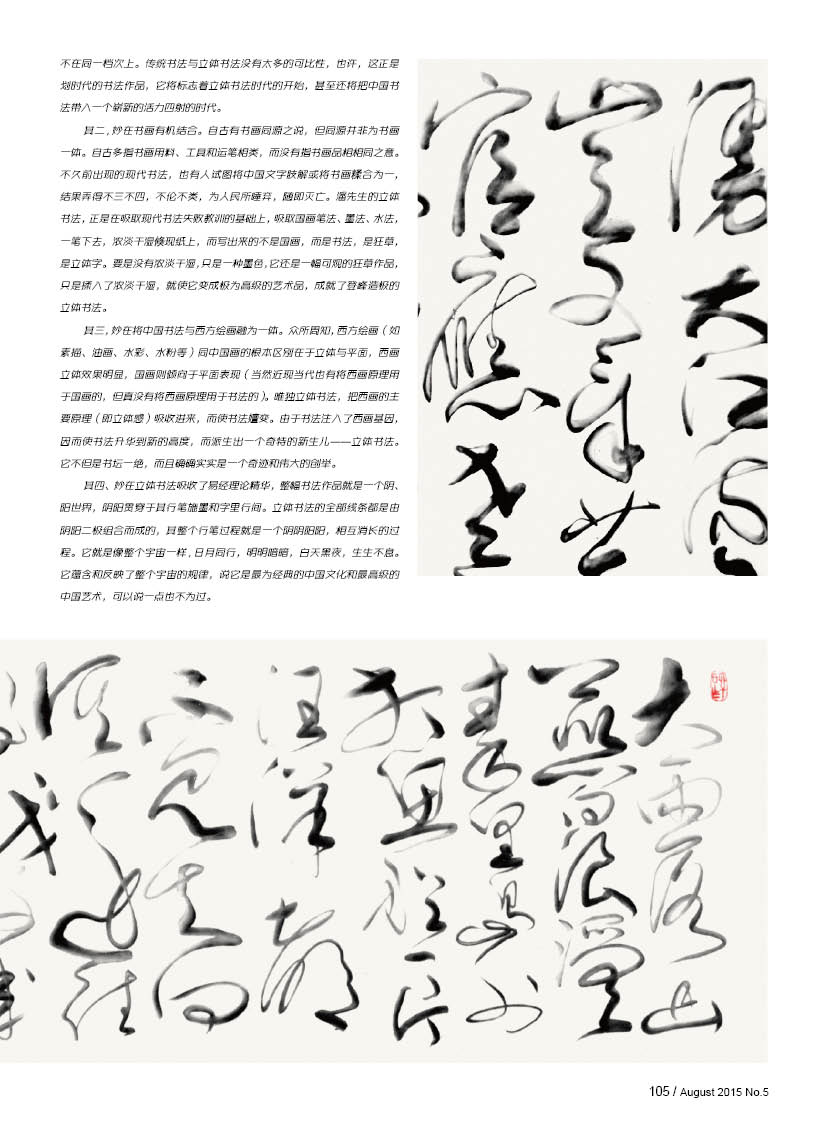 不在同一档次上。传统书法与立体书法没有太多的可比性，也许，这正是
划时代的书法作品，它将标志着立体书法时代的开始，甚至还将把中国书
法带入一个崭新的活力四射的时代。
其二，妙在书画有机结合。自古有书画同源之说，但同源并非为书画
一体。自古多指书画用料、工具和运笔相类，而没有指书画品相相同之意。
不久前出现的现代书法，也有人试图将中国文字肢解或将书画糅合为一，
结果弄得不三不四，不伦不类，为人民所唾弃，随即灭亡。潘先生的立体
书法，正是在吸取现代书法失败教训的基础上，吸取国画笔法、墨法、水法，
一笔下去，浓淡干湿倏现纸上，而写出来的不是国画，而是书法，是狂草，
是立体字。要是没有浓淡干湿，只是一种墨色，它还是一幅可观的狂草作品，
只是揉入了浓淡干湿，就使它变成极为高级的艺术品，成就了登峰造极的
立体书法。
其三，妙在将中国书法与西方绘画融为一体。众所周知，西方绘画（如
素描、油画、水彩、水粉等）同中国画的根本区别在于立体与平面，西画
立体效果明显，国画则倾向于平面表现（当然近现当代也有将西画原理用
于国画的，但真没有将西画原理用于书法的）。唯独立体书法，把西画的主
要原理（即立体感）吸收进来，而使书法嬗变。由于书法注入了西画基因，
因而使书法升华到新的高度，而派生出一个奇特的新生儿——立体书法。
它不但是书坛一绝，而且确确实实是一个奇迹和伟大的创举。
其四、妙在立体书法吸收了易经理论精华，整幅书法作品就是一个阴、
阳世界，阴阳贯穿于其行笔施墨和字里行间。立体书法的全部线条都是由
阴阳二极组合而成的，其整个行笔过程就是一个阴阴阳阳，相互消长的过
程。它就是像整个宇宙一样，日月同行，明明暗暗，白天黑夜，生生不息。
它蕴含和反映了整个宇宙的规律，说它是最为经典的中国文化和最高级的
中国艺术，可以说一点也不为过。
大雨落幽
燕白浪滔天
秦皇島外
打魚船一片
汪洋都
不見知向
105 / August 2015 No.5